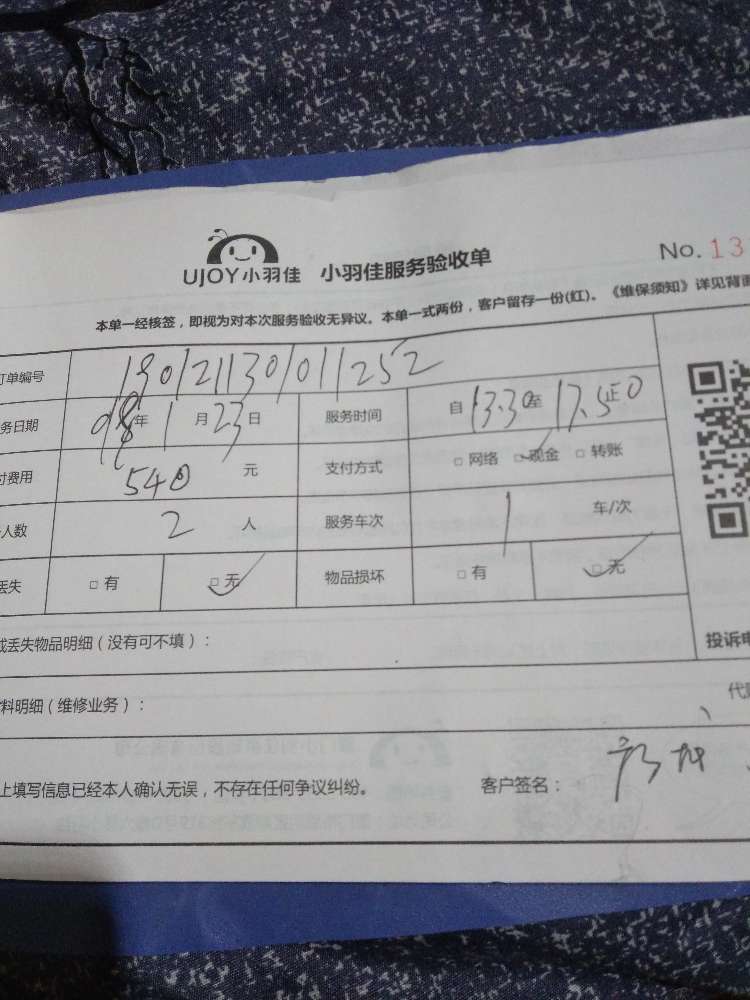 UJOY小羽佳 小羽佳服务验收单 No.13
本单一经核签，即视为对本次服务验收无异议。本单一式两份，客户留存一份(红)。《维保须知》详见背面
订单编号 190121130101252
务日期 年 1 月 23 日 服务时间 自 13.30 至 17.50 止
付费用 540 元 支付方式 □网络 □现金 □转账
人数 2 人 服务车次 1 车/次
丢失 □有 □无 物品损坏 □有 □无
或丢失物品明细（没有可不填）：
投诉电
料明细（维修业务）：
代
上填写信息已经本人确认无误，不存在任何争议纠纷。 客户签名：